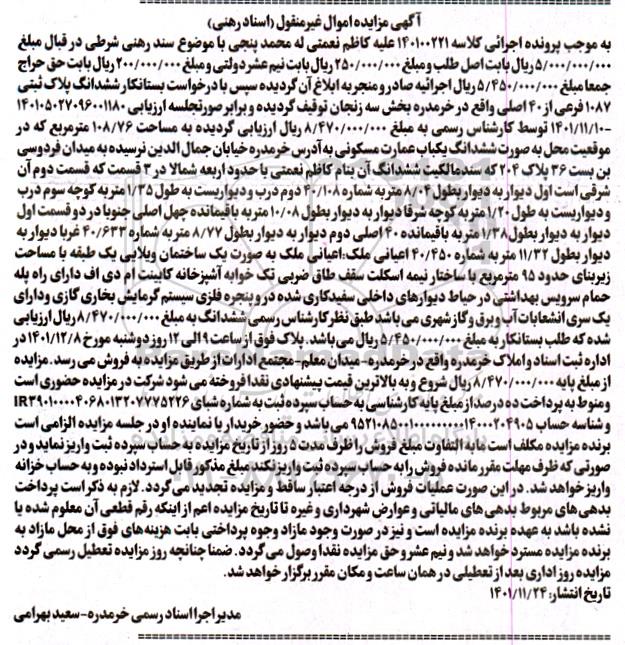 آگهی مزایده اموال غیرمنقول (اسناد رهنی)
به موجب پرونده اجرائی کلاسه ۱۴۰۱۰۰۲۲۱ علیه کاظم نعمتی له محمد پنجی با موضوع سند رهنی شرطی در قبال مبلغ
۵/۰۰۰/۰۰۰/۰۰۰ ریال بابت اصل طلب و مبلغ ۲۵۰/۰۰۰/۰۰۰ ریال بابت نیم عشر دولتی و مبلغ ۲۰۰/۰۰۰/۰۰۰ ریال بابت حق حراج
جمعا مبلغ ۵/۴۵۰/۰۰۰/۰۰۰ ریال اجرائیه صادر و منجر به ابلاغ آن گردیده سپس با درخواست بستانکار ششدانگ پلاک ثبتی
۱۰۸۷ فرعی از ۴۰ اصلی واقع در خرمدره بخش سه زنجان توقیف گردیده و برابر صورتجلسه ارزیابی ۱۴۰۱۰۵۰۲۷۰۹۶۰۰۱۱۸۰
-۱۴۰۱/۱۱/۱۰ توسط کارشناس رسمی به مبلغ ۸/۴۷۰/۰۰۰/۰۰۰ ریال ارزیابی گردیده به مساحت ۱۰۸/۷۶ مترمربع که در
موقعیت محل به صورت ششدانگ یکباب عمارت مسکونی به آدرس خرمدره خیابان جمال الدین نرسیده به میدان فردوسی
بن بست ۳۶ پلاک ۲۰۴ که سند مالکیت ششدانگ آن بنام کاظم نعمتی با حدود اربعه شمالا در ۳ قسمت که قسمت دوم آن
شرقی است اول دیوار به دیوار بطول ۸/۰۴ متر به شماره ۴۰/۱۰۸ دوم درب و دیواریست به طول ۱/۳۵ متر به کوچه سوم درب
و دیواریست به طول ۱/۲۰ متر به کوچه شرقا دیوار به دیوار بطول ۱۰/۰۸ متر به باقیمانده چهل اصلی جنوبا در دو قسمت اول
دیوار به دیوار بطول ۱/۳۸ متر به باقیمانده ۴۰ اصلی دوم دیوار به دیوار بطول ۸/۷۷ متر به شماره ۴۰/۶۳۳ غربا دیوار به
دیوار بطول ۱۱/۳۲ متر به شماره ۴۰/۴۵۰ اعیانی ملک:اعیانی ملک به صورت یک ساختمان ویلایی یک طبقه با مساحت
زیربنای حدود ۹۵ مترمربع با ساختار نیمه اسکلت سقف طاق ضربی تک خوابه آشپزخانه کابینت ام دی اف دارای راه پله
حمام سرویس بهداشتی در حیاط دیوارهای داخلی سفیدکاری شده در و پنجره فلزی سیستم گرمایش بخاری گازی و دارای
یک سری انشعابات آب و برق و گاز شهری می باشد طبق نظر کارشناس رسمی ششدانگ به مبلغ ۸/۴۷۰/۰۰۰/۰۰۰ ریال ارزیابی
شده که طلب بستانکار به مبلغ ۵/۴۵۰/۰۰۰/۰۰۰ ریال می باشد. پلاک فوق از ساعت ۹ الی ۱۲ روز دوشنبه مورخ ۱۴۰۱/۱۲/۸ در
اداره ثبت اسناد و املاک خرمدره واقع در خرمدره-میدان معلم-مجتمع ادارات از طریق مزایده به فروش می رسد. مزایده
از مبلغ پایه ۸/۴۷۰/۰۰۰/۰۰۰ ریال شروع و به بالاترین قیمت پیشنهادی نقدا فروخته می شود شرکت در مزایده حضوری است
و منوط به پرداخت ده درصد از مبلغ پایه کارشناسی به حساب سپرده ثبت به شماره شبای IR۳۹۰۱۰۰۰۰۴۰۶۸۰۱۳۲۰۷۷۷۵۲۲۶
و شناسه حساب می باشد و حضور خریدار یا نماینده او در جلسه مزایده الزامی است
برنده مزایده مکلف است مابه التفاوت مبلغ فروش را ظرف مدت ۵ روز از تاریخ مزایده به حساب سپرده ثبت واریز نماید و در
صورتی که ظرف مهلت مقرر مانده فروش را به حساب سپرده ثبت واریز نکند مبلغ مذکور قابل استرداد نبوده و به حساب خزانه
واریز خواهد شد. در این صورت عملیات فروش از درجه اعتبار ساقط و مزایده تجدید می گردد. لازم به ذکر است پرداخت
بدهی های مربوط بدهی های مالیاتی و عوارض شهرداری و غیره تا تاریخ مزایده اعم از اینکه رقم قطعی آن معلوم شده یا
نشده باشد به عهده برنده مزایده است و نیز در صورت وجود مازاد وجوه پرداختی بابت هزینه های فوق از محل مازاد به
برنده مزایده مسترد خواهد شد و نیم عشر و حق مزایده نقدا وصول می گردد. ضمنا چنانچه روز مزایده تعطیل رسمی گردد
مزایده روز اداری بعد از تعطیلی در همان ساعت و مکان مقرر برگزار خواهد شد.
تاریخ انتشار: ۱۴۰۱/۱۱/۲۴
مدیر اجرا اسناد رسمی خرمدره-سعید بهرامی